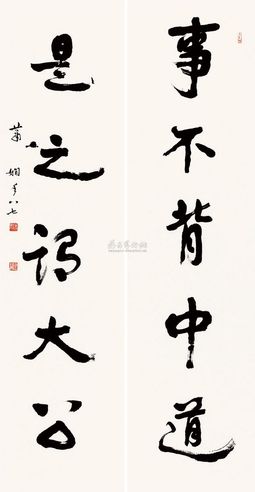 事不背中道
是之谓大公
萧娴年八七